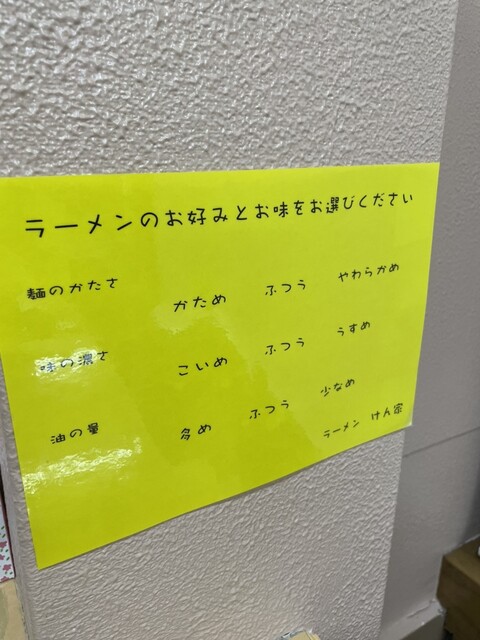 ラーメンのお好みとお味をお選びください
麺のかたさ かため ふつう やわらかめ
味の濃さ こいめ ふつう うすめ
油の量 多め ふつう 少なめ
ラーメン けん家